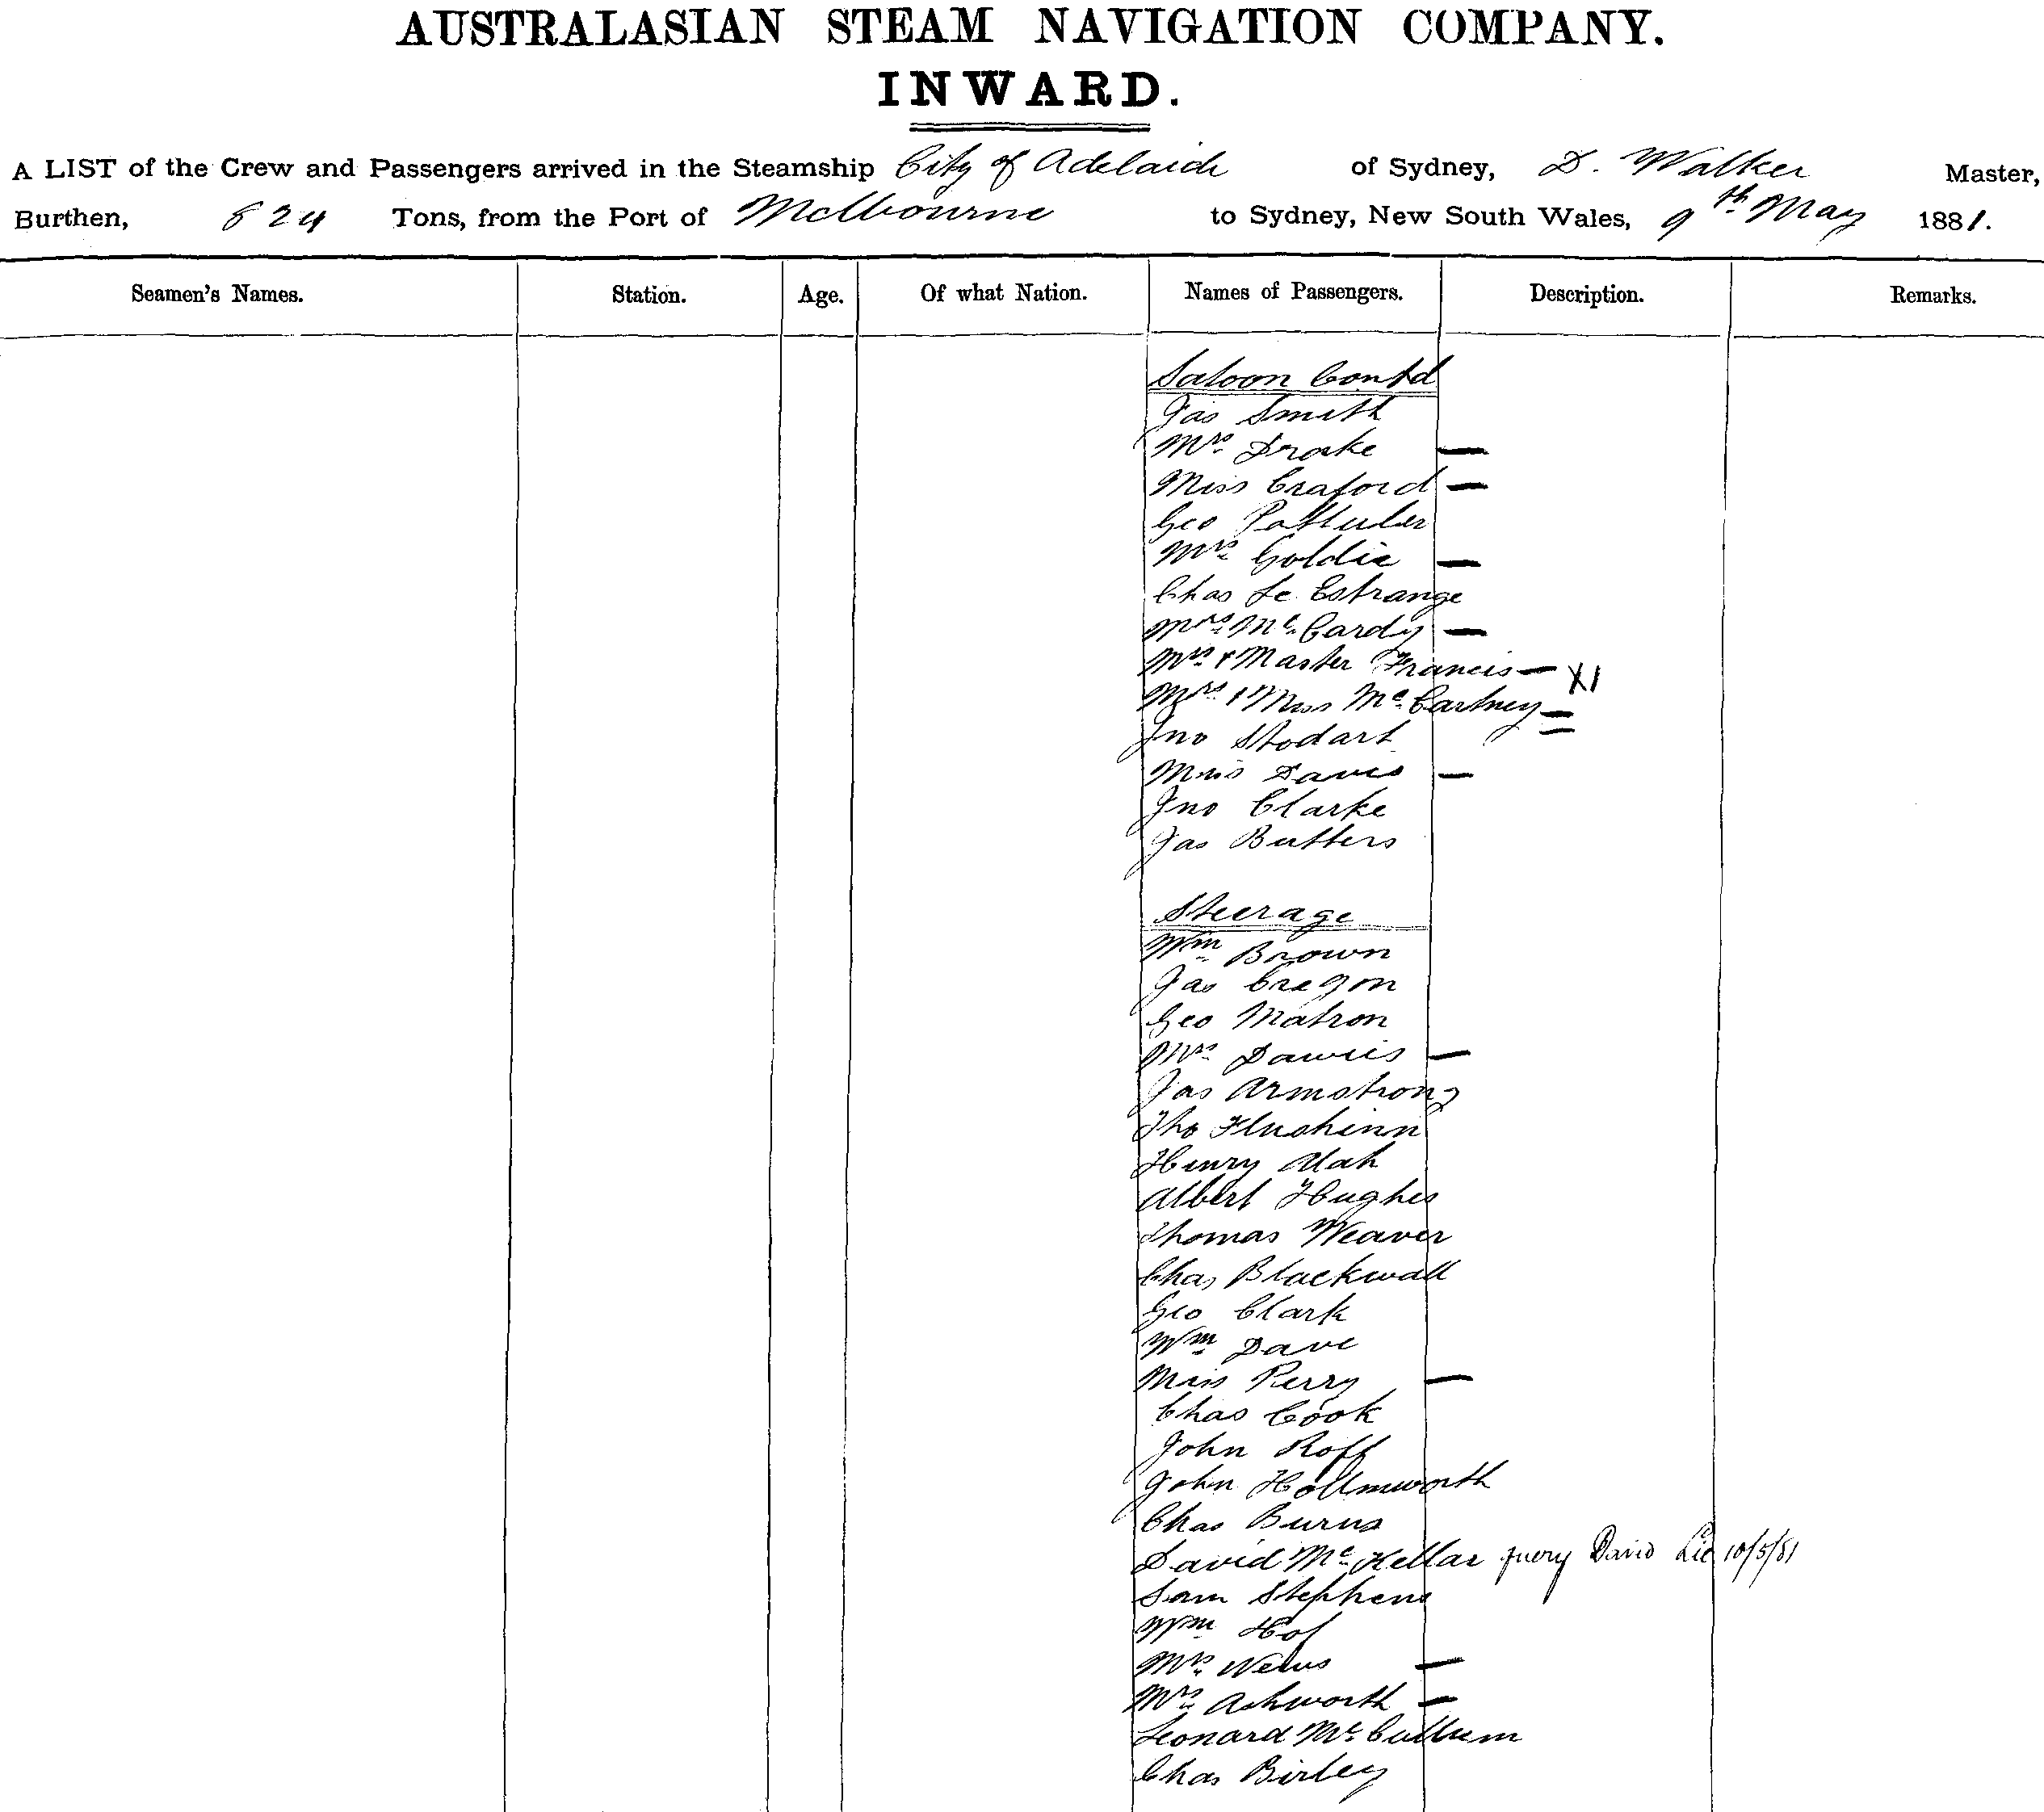 AUSTRALASIAN STEAM NAVIGATION COMPANY.
INWARD.
A LIST of the Crew and Passengers arrived in the Steamship City of Adelaide of Sydney, D. Walker Master,
Burthen, 824 Tons, from the Port of Melbourne to Sydney, New South Wales, 9th May 1881.
Seamen's Names. Station. Age. Of what Nation. Names of Passengers. Description. Remarks.
Saloon Contd
Jas Smith
Mrs Drake —
Miss Craford —
Geo
Mrs Goldie —
Chas Le Estrange
Mrs Mc Cardy —
Mrs & Master Francis — X1
Mrs & Miss Mc Cartney =
Jno Stodart
Miss Davis —
Jno Clarke
Jas Butters
Steerage
Wm Brown
Jas Cragon
Geo Matron
Mrs —
Jas Armstrong
Tho
Henry
Albert Hughes
Thomas Weaver
Chas Blackwall
Geo Clark
Wm Dave
Miss Perry —
Chas Cook
John Roff
John
Chas Burns
David Mc Kellar query David Lee 10/5/81
Sam Stephens
Wm
Mrs —
Mrs Ashworth —
Leonard Mc Cullum
Chas Birley